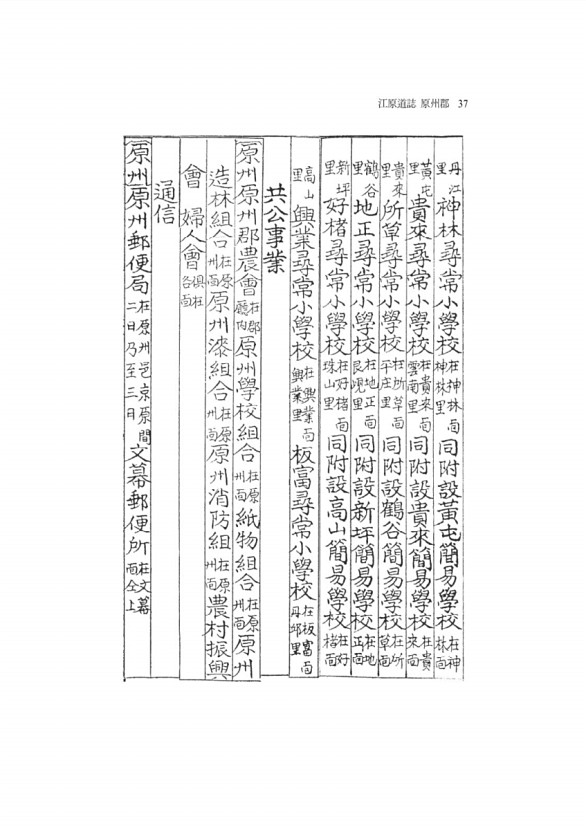 江原道誌 原州郡 37
丹江里神林尋常小學校在神林面神林里同附設黃屯簡易學校在神林面
黃屯里貴來尋常小學校在貴來面雲南里同附設貴來簡易學校在貴來面
貴來里所草尋常小學校在所草面平庄里同附設鶴谷簡易學校在所草面
鶴谷里地正尋常小學校在地正面艮峴里同附設新坪簡易學校在地正面
新坪里好楮尋常小學校在好楮面珠山里同附設高山簡易學校在好楮面
高山里興業尋常小學校在興業面興業里板富尋常小學校在板富面丹邱里
共公事業
原州原州郡農會在郡廳內原州學校組合在原州面紙物組合在原州面原州
造林組合在原州面原州漆組合在原州面原州消防組在原州面農村振興
會 婦人會俱在各面
通信
原州原州郵便局在原州邑京原間二日乃至三日文幕郵便所在文幕面仝上